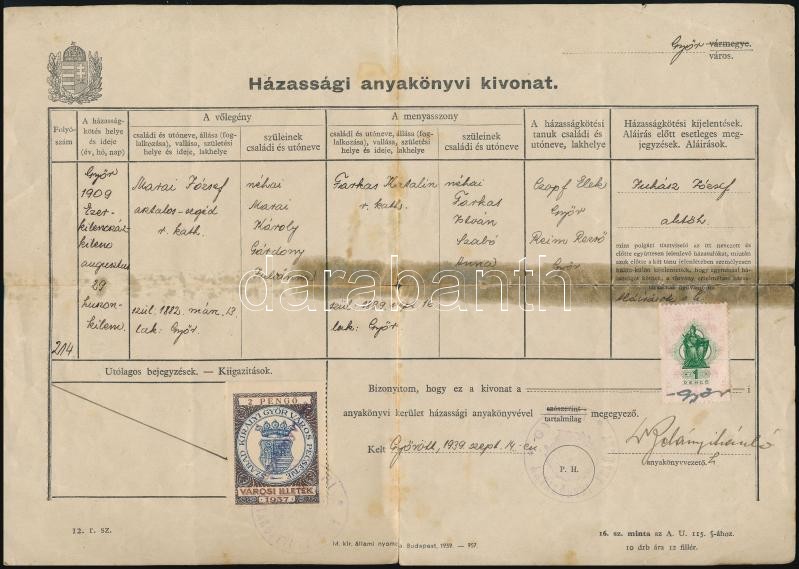 Győr vármegye.
város.
Házassági anyakönyvi kivonat.
Folyó-
szám
A házasság-
kötés helye
és ideje
(év, hó, nap)
A vőlegény
családi és utóneve, állása (fog-
lalkozása), vallása, születési
helye és ideje, lakhelye
szüleinek
családi és utóneve
A menyasszony
családi és utóneve, állása (fog-
lalkozása), vallása, születési
helye és ideje, lakhelye
szüleinek
családi és utóneve
A házasságkötési
tanuk családi és
utóneve, lakhelye
Házasságkötési kijelentések.
Aláírás előtt esetleges meg-
jegyzések. Aláírások.
214
Győr
1909
Ezer-
kilencszáz-
kilenc
augusztus
29
huszon-
kilenc
Marai József
asztalos-segéd
r. kath.
szül: 1882. márc. 13.
lak: Győr.
néhai
Marai
Károly
Gárdony
Farkas Katalin
r. kath.
lak: Győr.
néhai
Farkas
István
Szabó
Anna
Czopf Elek
Győr
Reim Rezső
Győr
Juhász József
mint polgári tisztviselő az itt nevezett és
előtte együttesen jelenlevő házasulókat, miután
ezek előtte a két tanu jelenlétében személyesen
kijelentették, hogy egymással
házasságot kötnek, a törvény értelmében házas-
társaknak nyilvánította.
Aláírások s. k.
darabanth
1
PENGŐ
Győr
Utólagos bejegyzések. — Kiigazítások.
2 PENGŐ
SZABAD KIRÁLYI GYŐR VÁROS PECSÉTJE
VÁROSI ILLETÉK
1937
Bizonyítom, hogy ez a kivonat a i
anyakönyvi kerület házassági anyakönyvével szószerint megegyező.
tartalmilag
Kelt Győrött, 1939. szept. 14.-én
P. H.
anyakönyvvezető.
12. r. sz.
M. kir. állami nyomda. Budapest, 1939. — 957.
16. sz. minta az A. U. 115. §-ához.
10 drb ára 12 fillér.